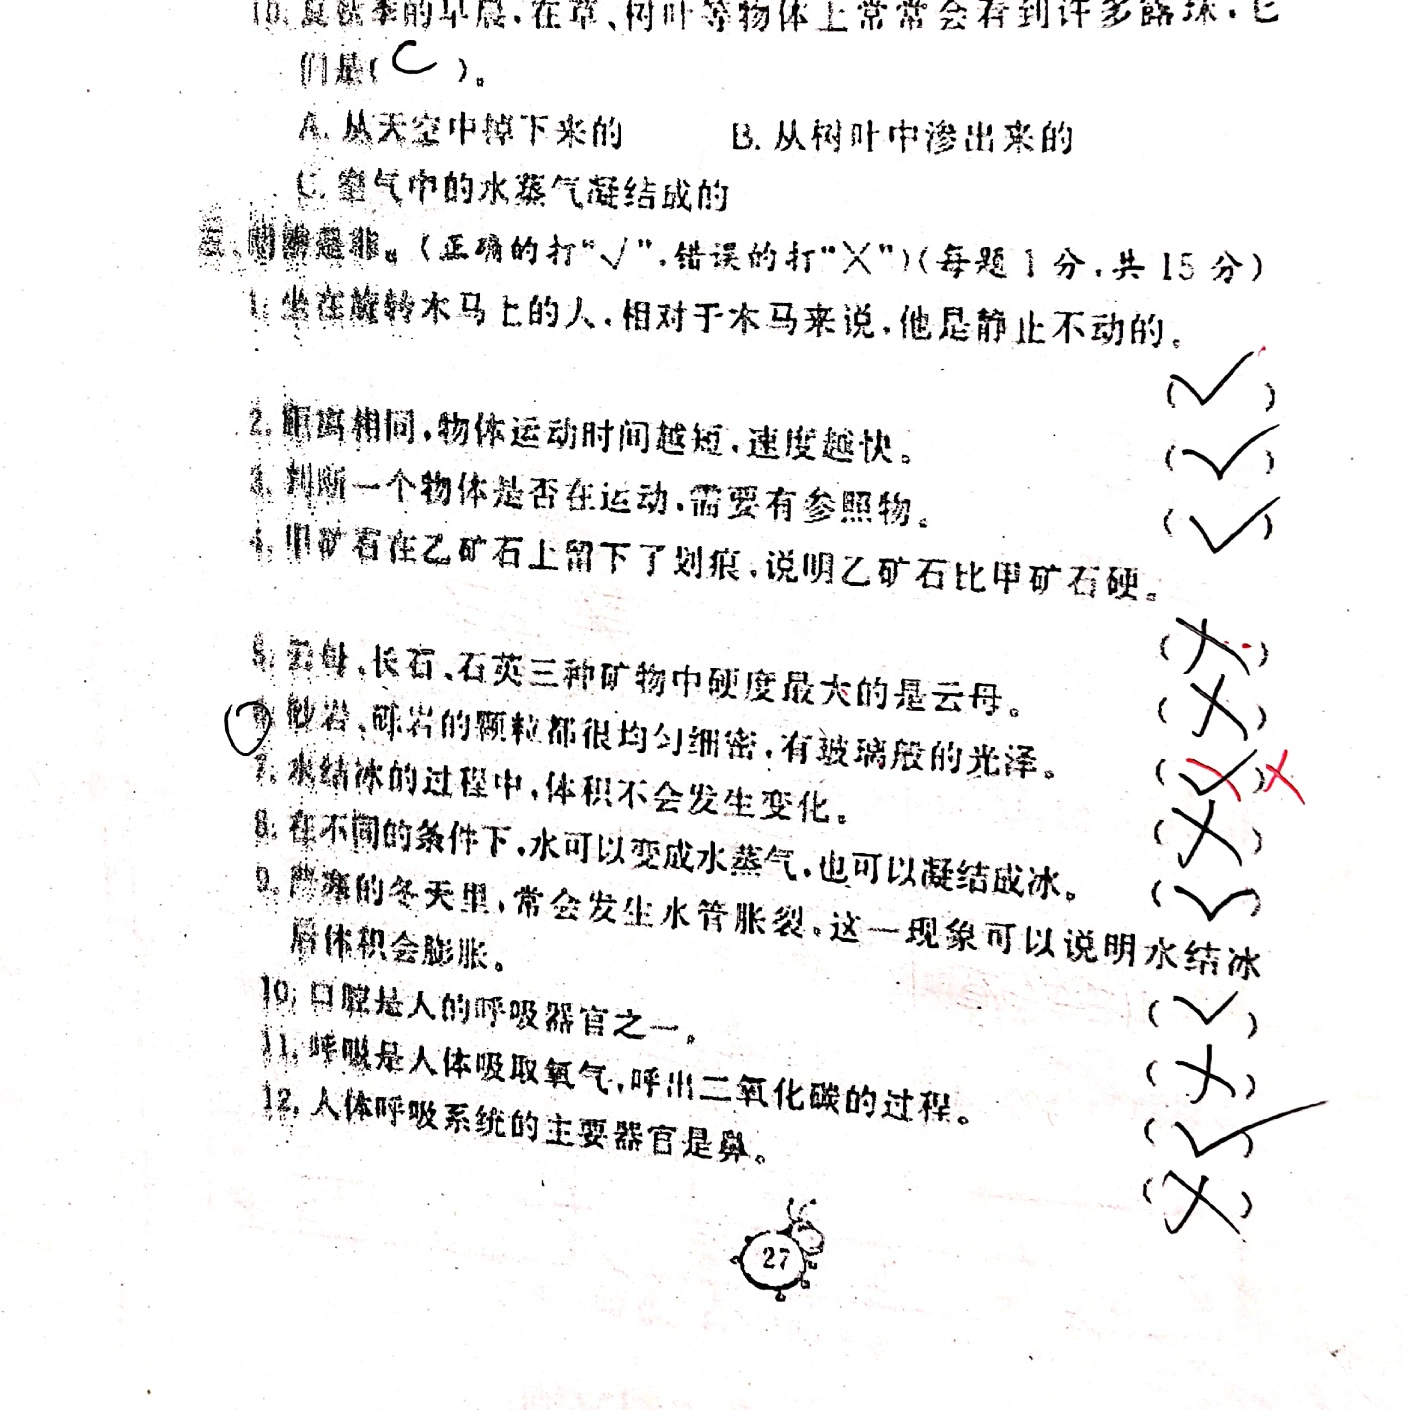 10. 夏秋季的早晨,在草、树叶等物体上常常会看到许多露珠,它
们是( C )。
A. 从天空中掉下来的 B. 从树叶中渗出来的
C. 空气中的水蒸气凝结成的
三、明辨是非。(正确的打“√”,错误的打“×”)(每题1分,共15分)
1. 坐在旋转木马上的人,相对于木马来说,他是静止不动的。
(✓)
2. 距离相同,物体运动时间越短,速度越快。 (✓)
3. 判断一个物体是否在运动,需要有参照物。 (✓)
4. 甲矿石在乙矿石上留下了划痕,说明乙矿石比甲矿石硬。
(×)
5. 云母、长石、石英三种矿物中硬度最大的是云母。 (×)
6. 砂岩、砾岩的颗粒都很均匀细密,有玻璃般的光泽。 (✓)×
7. 水结冰的过程中,体积不会发生变化。 (×)
8. 在不同的条件下,水可以变成水蒸气,也可以凝结成冰。 (✓)
9. 严寒的冬天里,常会发生水管胀裂。这一现象可以说明水结冰
后体积会膨胀。 (✓)
10. 口腔是人的呼吸器官之一。 (×)
11. 呼吸是人体吸取氧气,呼出二氧化碳的过程。 (✓)
12. 人体呼吸系统的主要器官是鼻。 (×)
27